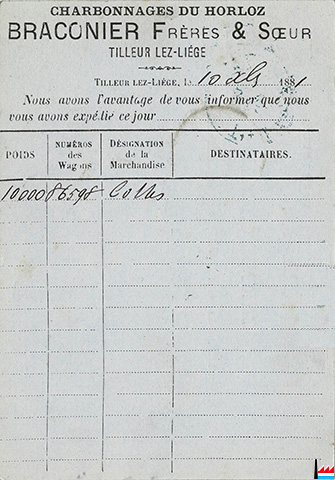 CHARBONNAGES DU HORLOZ
BRACONIER FRÈRES & SŒUR
TILLEUR LEZ-LIÉGE
TILLEUR LEZ-LIÉGE, le 10 1881
Nous avons l'avantage de vous informer que nous
vous avons expédié ce jour
POIDS NUMÉROS des Wagons DÉSIGNATION de la Marchandise DESTINATAIRES.
10000 86598